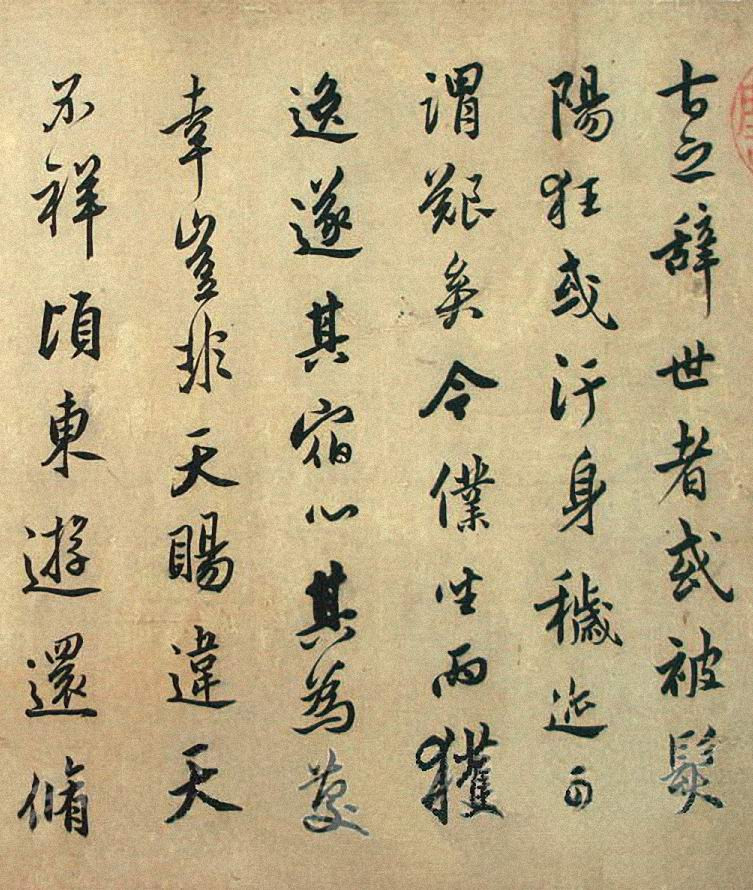 古之辞世者或被髮
陽狂或汙身穢迹可
謂艱矣今僕坐而獲
逸遂其宿心其為慶
幸豈非天賜違天
不祥頃東遊還脩